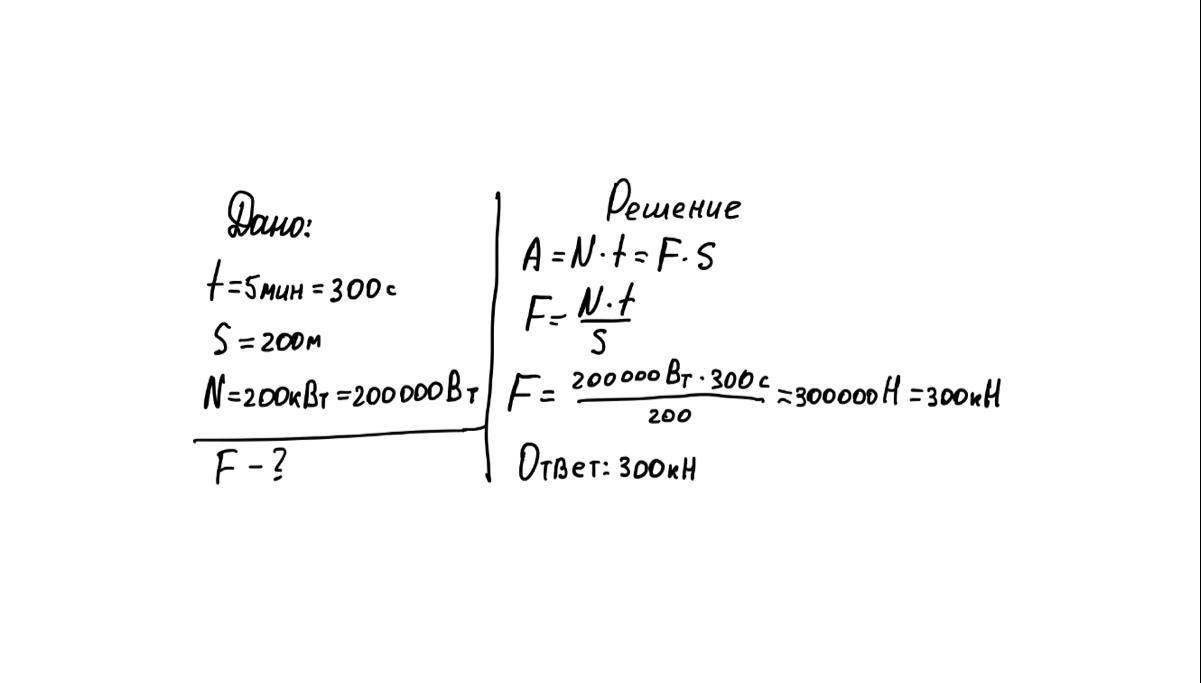 Дано:
t=5мин=300с
S=200м
N=200кВт=200000Вт
F-?
Решение
A=N·t=F·S
F=N·t/S
F=200000Вт·300с/200=300000Н=300кН
Ответ: 300кН